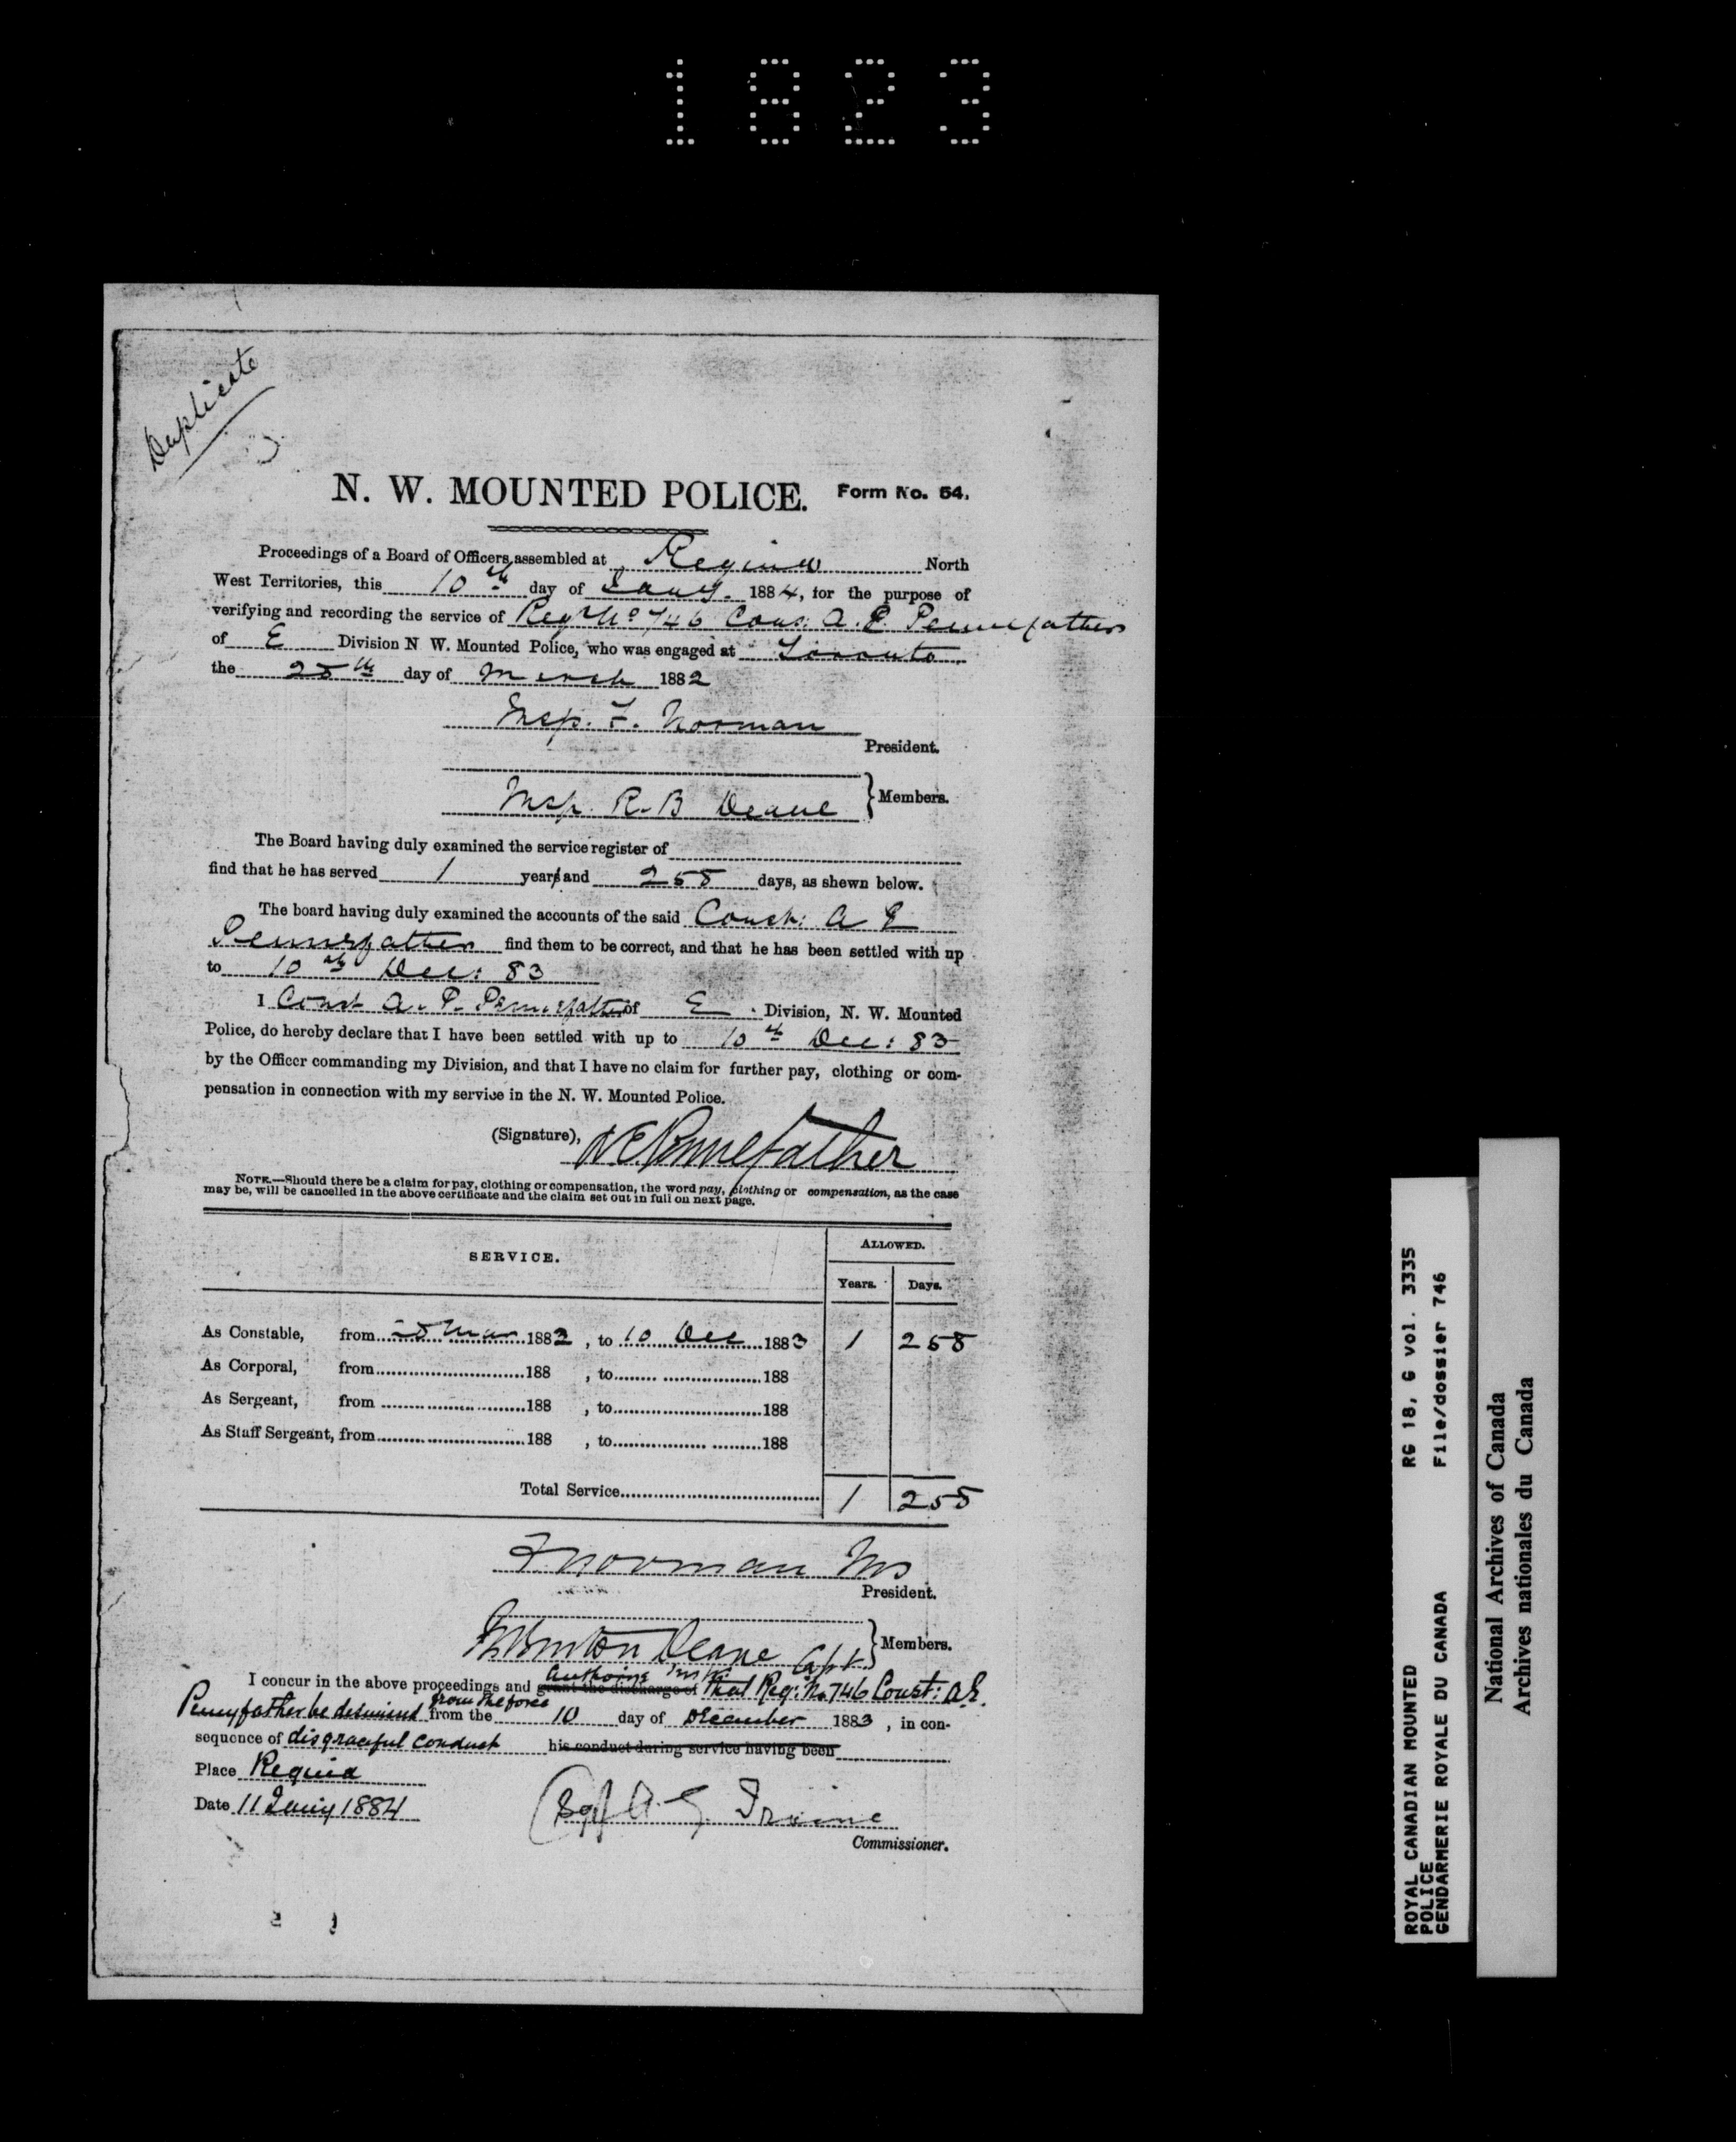 1823
Duplicate
N. W. MOUNTED POLICE. Form No. 54.
Proceedings of a Board of Officers assembled at Regina North
West Territories, this 10th day of Jany. 1884, for the purpose of
verifying and recording the service of Reg. No 746 Cons. A. E. Pennefather
of E Division N W. Mounted Police, who was engaged at Toronto
the 28th day of March 1882
Insp. F. Norman
President.
Insp. R. B Deane } Members.
The Board having duly examined the service register of
find that he has served 1 years and 258 days, as shewn below.
The board having duly examined the accounts of the said Const: A E
Pennefather find them to be correct, and that he has been settled with up
to 10th Dec: 83
I Const A. E. Pennefather of E Division, N. W. Mounted
Police, do hereby declare that I have been settled with up to 10th Dec: 83
by the Officer commanding my Division, and that I have no claim for further pay, clothing or com-
pensation in connection with my service in the N. W. Mounted Police.
(Signature), A E Pennefather
NOTE.—Should there be a claim for pay, clothing or compensation, the word pay, clothing or compensation, as the case
may be, will be cancelled in the above certificate and the claim set out in full on next page.
SERVICE. ALLOWED.
Years. Days.
As Constable, from 28 Mar 1882, to 10 Dec 1883 1 258
As Corporal, from 188 , to 188
As Sergeant, from 188 , to 188
As Staff Sergeant, from 188 , to 188
Total Service 1 258
F Norman
President.
R Burton Deane Capt } Members.
authorize
I concur in the above proceedings and grant the discharge of that Reg: No. 746 Const: A.E.
from the force
Pennyfather be dismissed from the 10 day of December 1883 , in con-
sequence of disgraceful conduct his conduct during service having been
Place Regina
Date 11 Jany 1884
(Sgd A. G. Irvine
Commissioner.
ROYAL CANADIAN MOUNTED RG 18, G vol. 3335
POLICE
GENDARMERIE ROYALE DU CANADA File/dossier 746
National Archives of Canada
Archives nationales du Canada